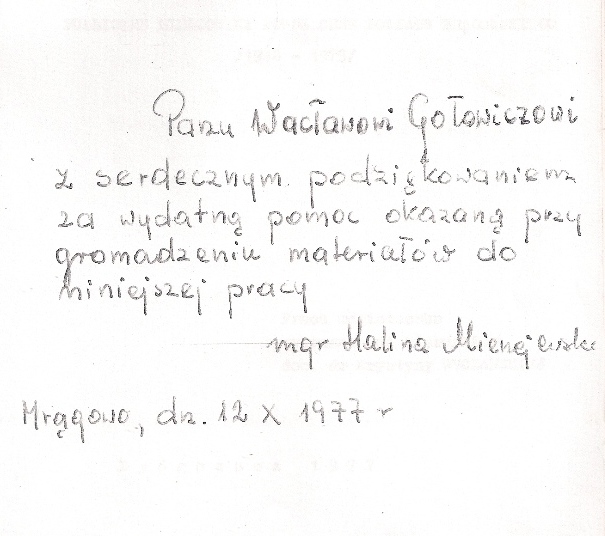 Panu Wacławowi Gołowiczowi
z serdecznym podziękowaniem
za wydatną pomoc okazaną przy
gromadzeniu materiałów do
niniejszej pracy
mgr Halina
Mrągowo, dn. 12 X 1977 r